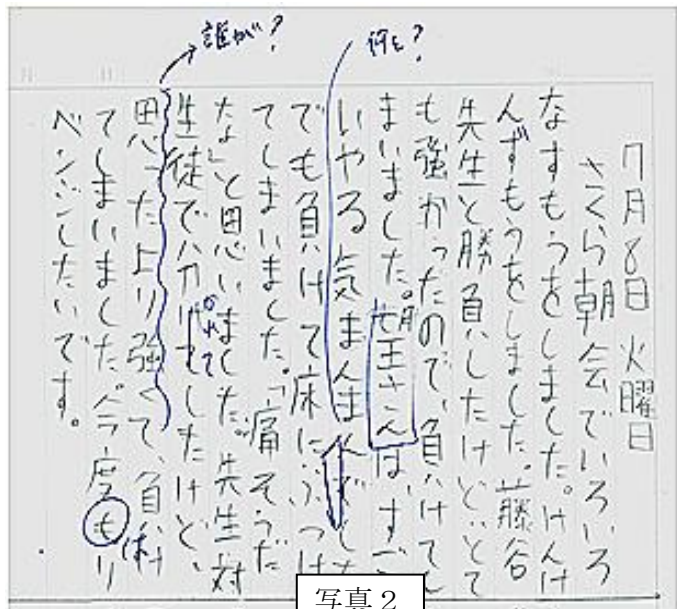 誰が?
何を?
7月8日 火曜日
さくら朝会でいろいろ
なすもうをしました。けんけ
んずもうをしました。藤谷
先生と勝負したけど、とて
も強かったので、負けてし
まいました。
さんは、すご
いやる気まんまんでした
でも負けて床にぶつけ
てしまいました。「痛そうだ
な」と思いました。先生対
生徒で分かれてしたけど、
思ったより強くて、負け
てしまいました。今度もリ
ベンジしたいです。
写真2